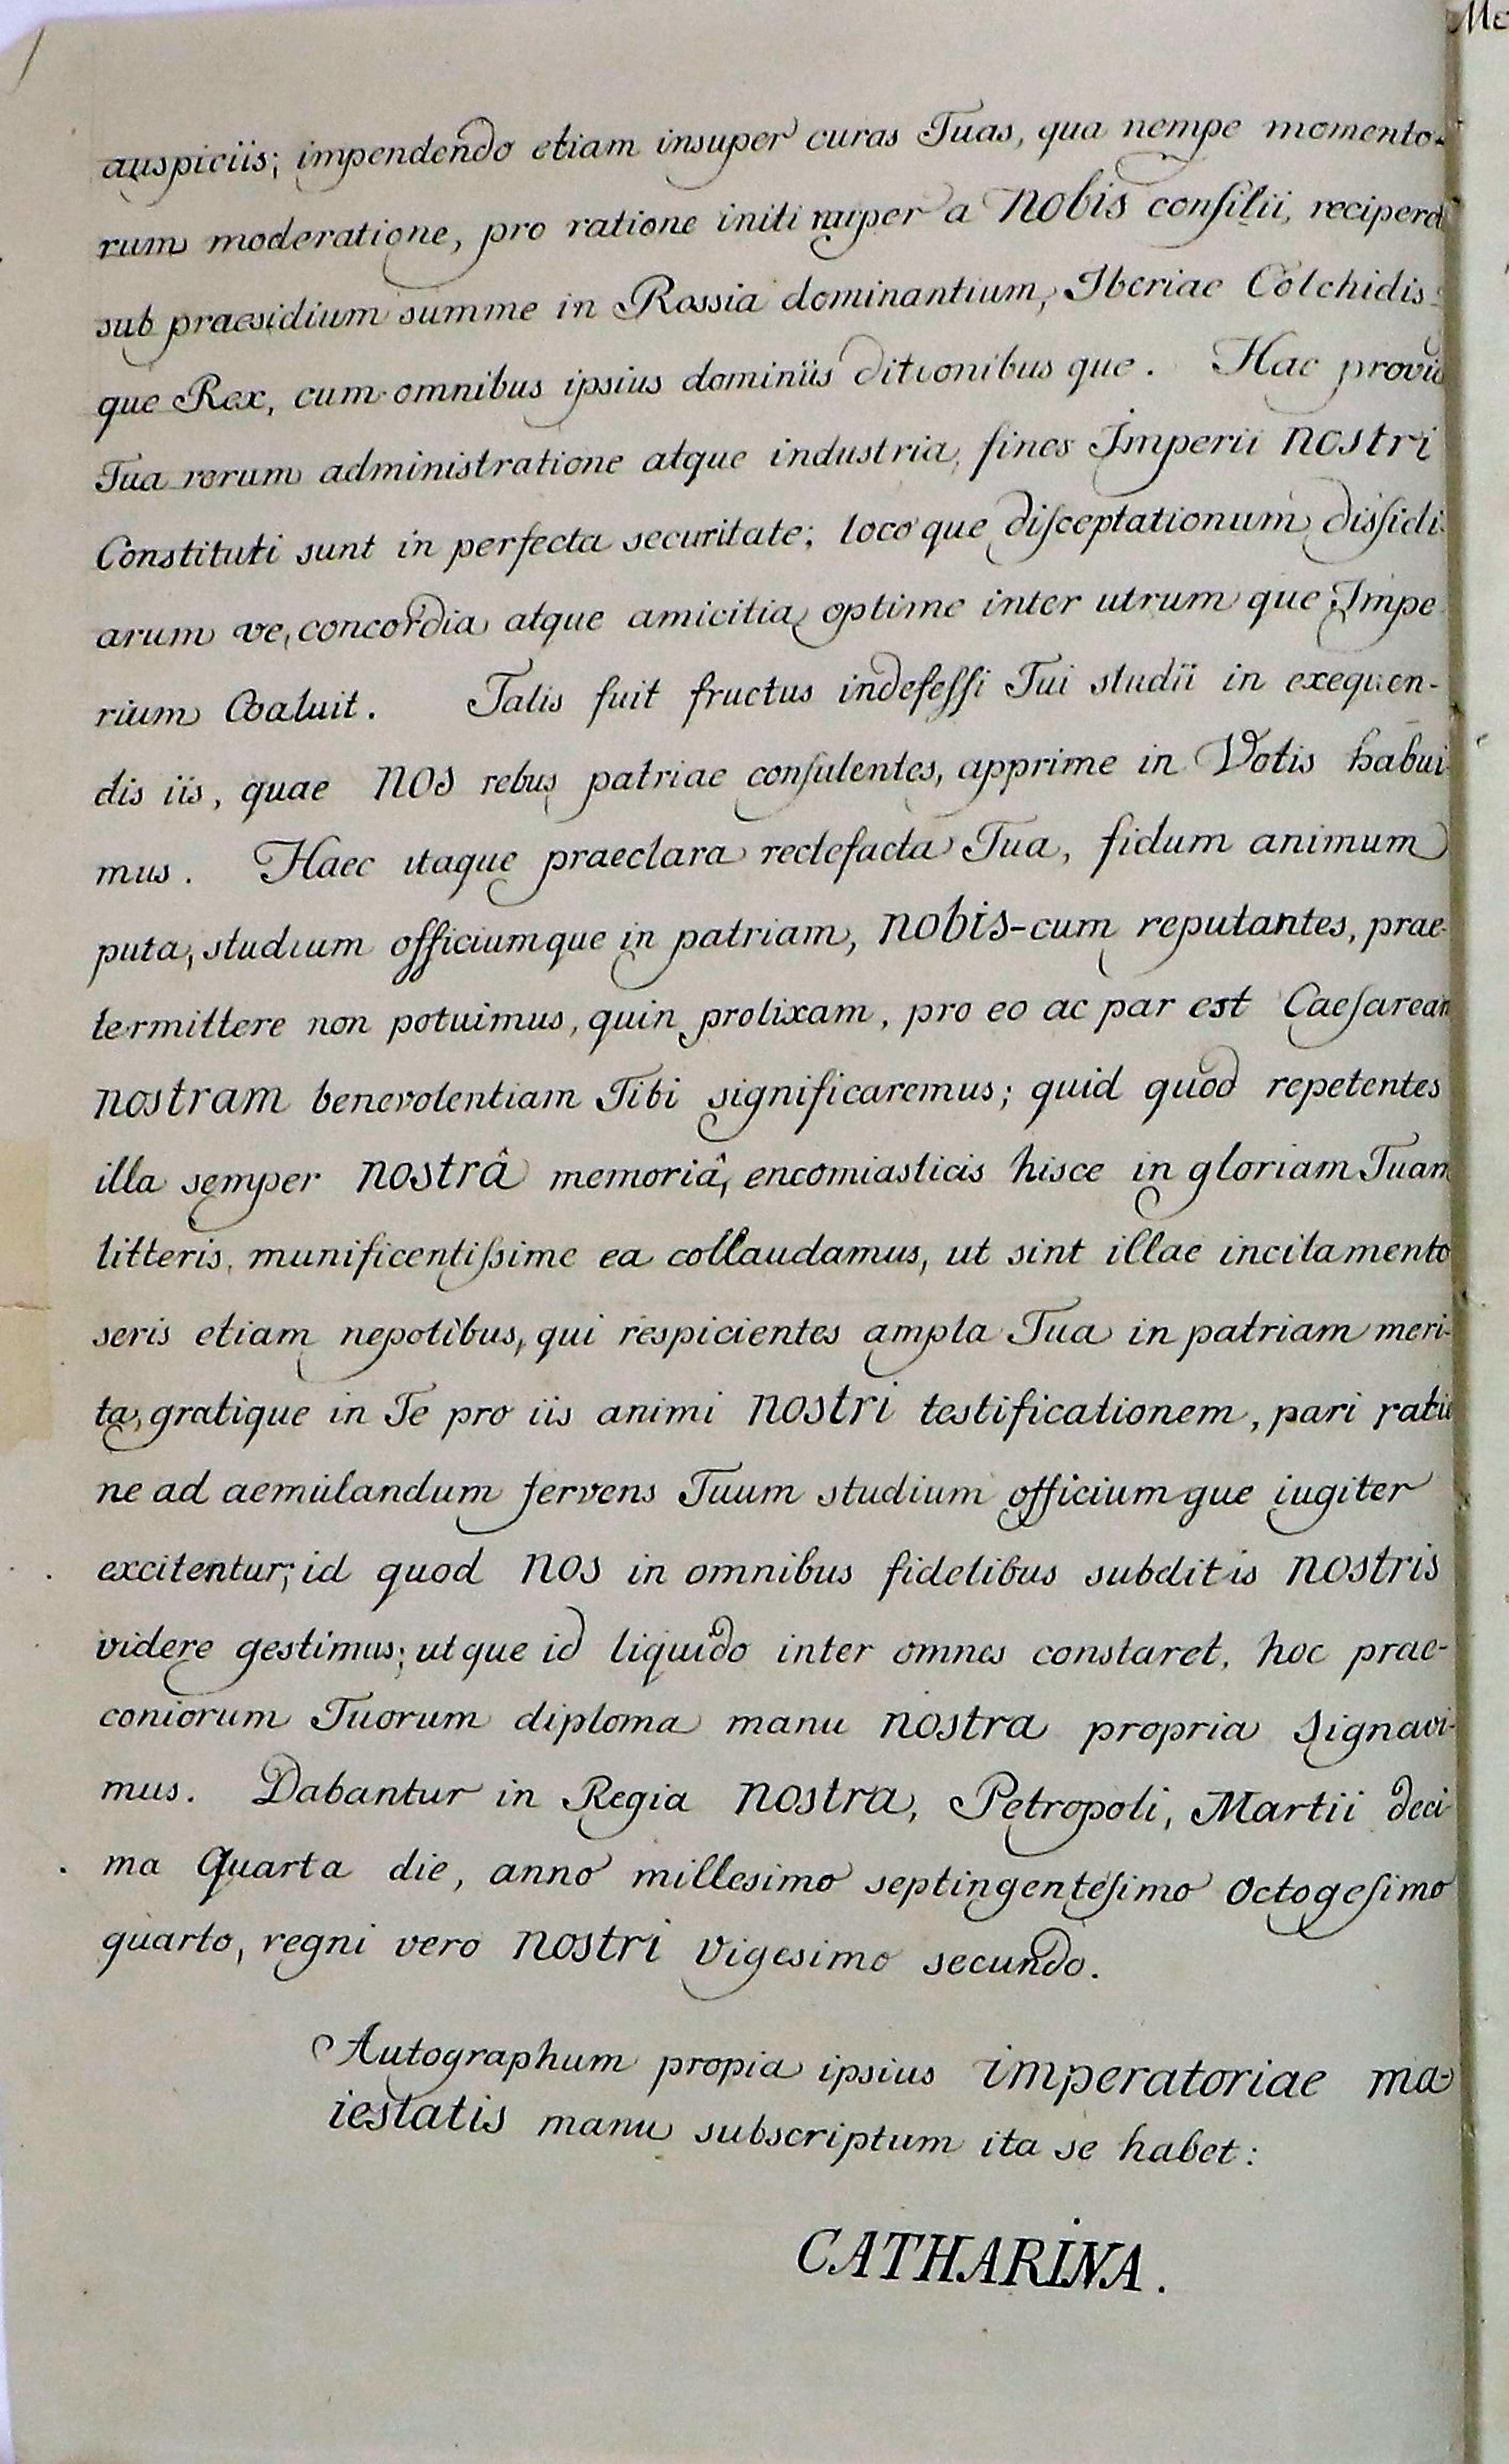 Me
auspiciis; impendendo etiam insuper curas Tuas, qua nempe momento-
rum moderatione, pro ratione initi nuper a Nobis consilii,
sub praesidium summe in Rossia dominantium, Iberiae Colchidis-
que Rex, cum omnibus ipsius dominiis ditionibus que. Hac
Tua rerum administratione atque industria, fines Imperii nostri
Constituti sunt in perfecta securitate; loco que disceptationum dissidi-
arum ve, concordia atque amicitia optime inter utrum que Impe
rium Coaluit. Talis fuit fructus indefessi Tui studii in exequen-
dis iis, quae NOS rebus patriae consulentes, apprime in Votis habui-
mus. Haec itaque praeclara rectefacta Tua, fidum animum
puta, studium officiumque in patriam, nobis-cum reputantes, prae-
termittere non potuimus, quin prolixam, pro eo ac par est Caesaream
nostram benevolentiam Tibi significaremus; quid quod repetentes
illa semper nostrâ memoriâ, encomiasticis hisce in gloriam Tuam
litteris, munificentissime ea collaudamus, ut sint illae incitamento
seris etiam nepotibus, qui respicientes ampla Tua in patriam meri-
ta, gratique in Te pro iis animi nostri testificationem, pari ratio
ne ad aemulandum fervens Tuum studium officium que iugiter
excitentur; id quod NOS in omnibus fidelibus subditis nostris
videre gestimus; ut que id liquido inter omnes constaret, hoc prae-
coniorum Tuorum diploma manu nostra propria signavi-
mus. Dabantur in Regia nostra, Petropoli, Martii deci-
ma Quarta die, anno millesimo septingentesimo Octogesimo
quarto, regni vero nostri vigesimo secundo.
Autographum propia ipsius imperatoriae ma-
iestatis manu subscriptum ita se habet:
CATHARINA.